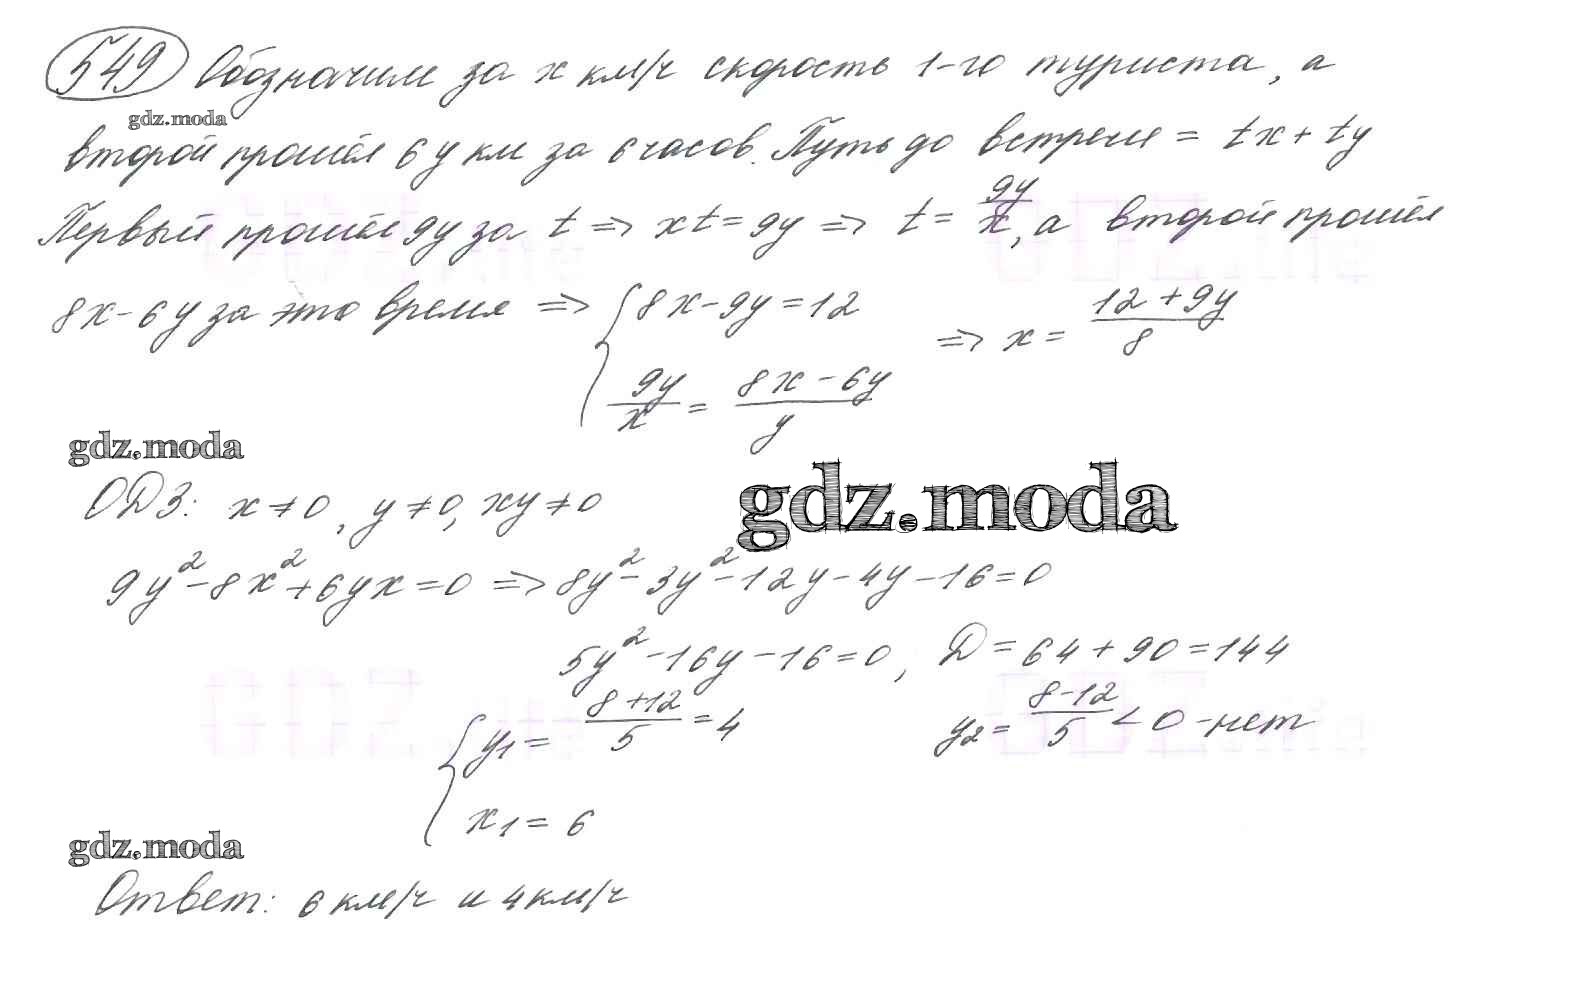 549 Обозначим за x км/ч скорость 1-го туриста, а
gdz.moda
второй прошёл 6y км за 6 часов. Путь до встречи = tx + ty
Первый прошёл 9y за t => xt = 9y => t = 9y/x, а второй прошёл
8x - 6y за это время => { 8x - 9y = 12 => x = (12 + 9y)/8
9y/x = (8x - 6y)/y
gdz.moda
gdz.moda
ОДЗ: x ≠ 0, y ≠ 0, xy ≠ 0
9y² - 8x² + 6yx = 0 => 8y² - 3y² - 12y - 4y - 16 = 0
5y² - 16y - 16 = 0, D = 64 + 90 = 144
{ y₁ = (8 + 12)/5 = 4 y₂ = (8 - 12)/5 < 0 - нет
x₁ = 6
gdz.moda
Ответ: 6 км/ч и 4 км/ч